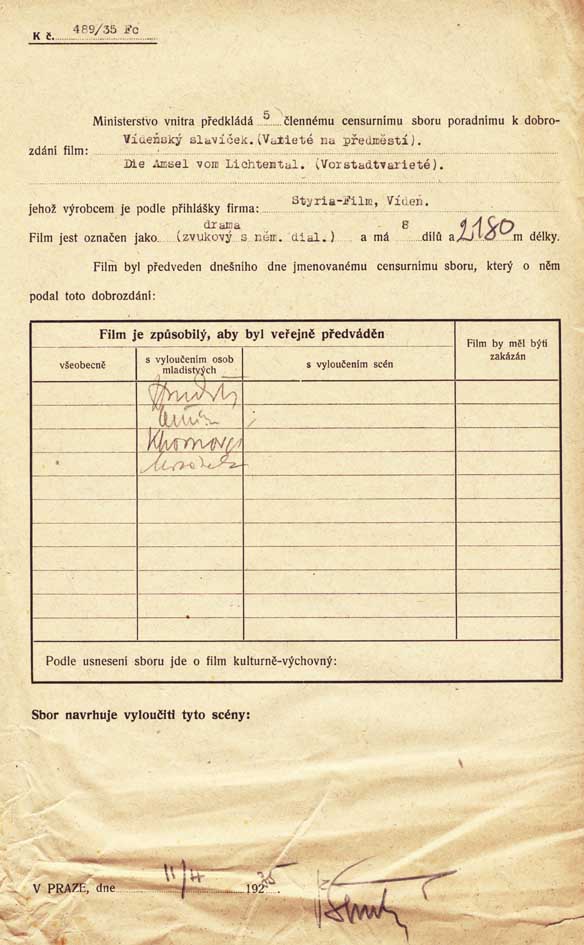 K č. 489/35 Fc
Ministerstvo vnitra předkládá 5 člennému censurnímu sboru poradnímu k dobro-
Vídeňský slavíček.(Varieté na předměstí).
zdání film:
Die Amsel vom Lichtental. (Vorstadtvarieté).
jehož výrobcem je podle přihlášky firma: Styria-Film, Vídeň.
drama
Film jest označen jako (zvukový s něm. dial.) a má 8 dílů a 2180 m délky.
Film byl předveden dnešního dne jmenovanému censurnímu sboru, který o něm
podal toto dobrozdání:
Film je způsobilý, aby byl veřejně předváděn
Film by měl býti
zakázán
všeobecně
s vyloučením osob
mladistvých
s vyloučením scén
Podle usnesení sboru jde o film kulturně-výchovný:
Sbor navrhuje vyloučiti tyto scény:
V PRAZE, dne 11/4 192